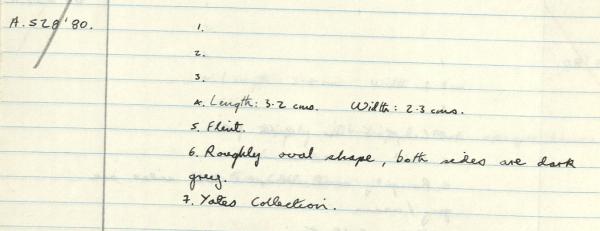 A.528'80. 1.
2.
3.
4. Length: 3.2 cms. Width: 2.3 cms.
5. Flint.
6. Roughly oval shape, both sides are dark
grey.
7. Yates Collection.